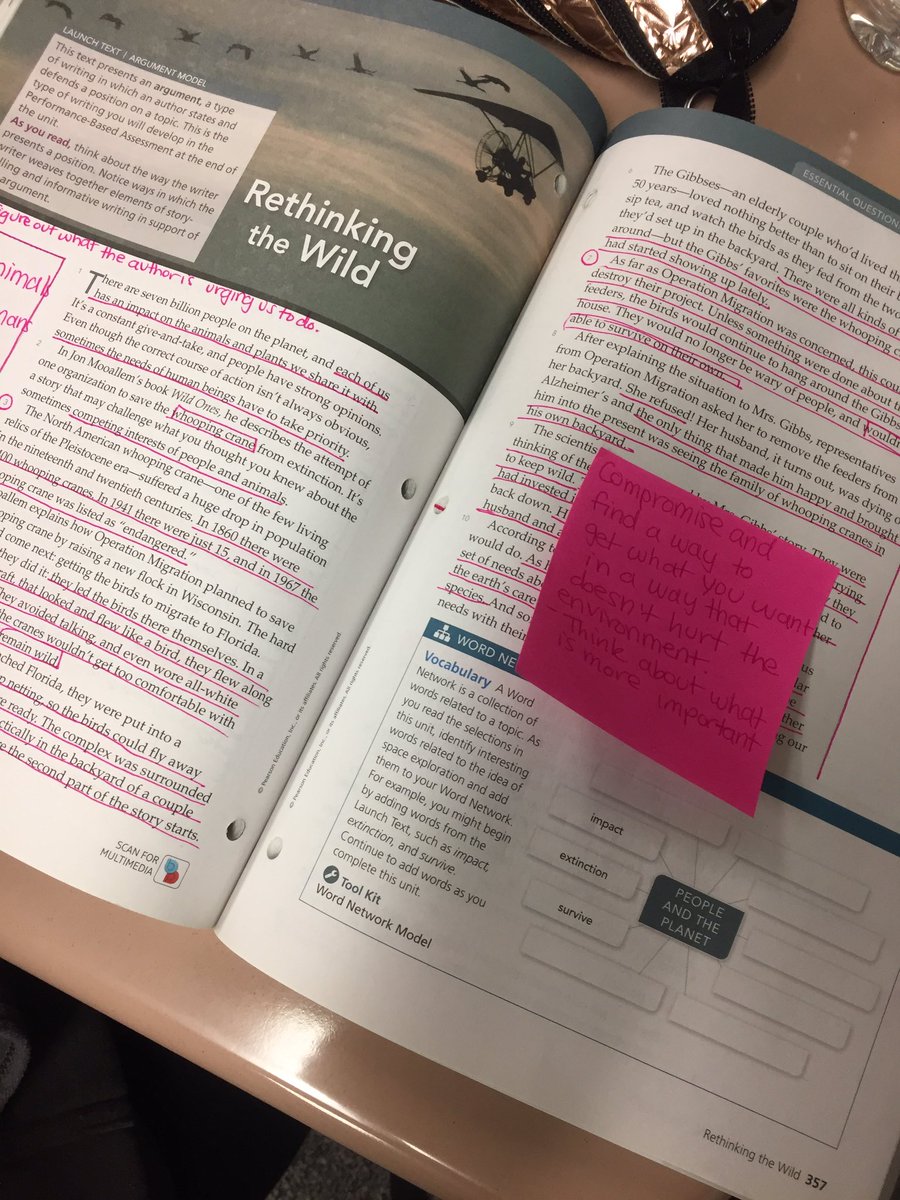 LAUNCH TEXT | ARGUMENT MODEL
This text presents an argument, a type
of writing in which an author states and
defends a position on a topic. This is the
type of writing you will develop in the
Performance-Based Assessment at the end of
the unit.
As you read, think about the way the writer
presents a position. Notice ways in which the
writer weaves together elements of story-
lling and informative writing in support of
argument.
Rethinking
the Wild
figure out what the author is urging us to do.
1 There are seven billion people on the planet, and each of us
has an impact on the animals and plants we share it with.
It's a constant give-and-take, and people have strong opinions.
Even though the correct course of action isn't always obvious,
sometimes the needs of human beings have to take priority.
2 In Jon Mooallem's book Wild Ones, he describes the attempt of
one organization to save the whooping crane from extinction. It's
a story that may challenge what you thought you knew about the
sometimes competing interests of people and animals.
3 The North American whooping crane—one of the few living
relics of the Pleistocene era—suffered a huge drop in population
in the nineteenth and twentieth centuries. In 1860 there were
400 whooping cranes. In 1941 there were just 15, and in 1967 the
oping crane was listed as "endangered."
allem explains how Operation Migration planned to save
oping crane by raising a new flock in Wisconsin. The hard
d come next: getting the birds to migrate to Florida.
they did it: they led the birds there themselves. In a
raft that looked and flew like a bird, they flew along
they avoided talking, and even wore all-white
the cranes wouldn't get too comfortable with
remain wild.
ached Florida, they were put into a
p netting, so the birds could fly away
re ready. The complex was surrounded
ctically in the backyard of a couple
e the second part of the story starts.
SCAN FOR
MULTIMEDIA
© Pearson Education, Inc., or its affiliates. All rights reserved.
© Pearson Education, Inc., or its affiliates. All rights reserved.
ESSENTIAL QUESTION
6 The Gibbses—an elderly couple who'd lived th
50 years—loved nothing better than to sit on their b
sip tea, and watch the birds as they fed from the two
they'd set up in the backyard. There were all kinds of
around—but the Gibbs' favorites were the whooping c
had started showing up lately.
7 As far as Operation Migration was concerned, this cou
destroy their project. Unless something were done about t
feeders, the birds would continue to hang around the Gibbs
house. They would no longer be wary of people, and wouldn
able to survive on their own.
8 After explaining the situation to Mrs. Gibbs, representatives
from Operation Migration asked her to remove the feeders from
her backyard. She refused! Her husband, it turns out, was dying o
Alzheimer's and the only thing that made him happy, and brought
him into the present was seeing the family of whooping cranes in
his own backyard.
9 The scientis
Mrs. Gibbs' story. They were
thinking of the
rying
to keep wild.
they
had invested
d to
back down. H
her
husband and
10 According t
us
would do. As
lar
set of needs abo
the earth's care
ther
species. And so
ng our
needs with thei
Compromise and
find a way to
get what you want
in a way that
doesn't hurt the
environment
Think about what
is more important
WORD NE
Vocabulary A Word
Network is a collection of
words related to a topic. As
you read the selections in
this unit, identify interesting
words related to the idea of
space exploration and add
them to your Word Network.
For example, you might begin
by adding words from the
Launch Text, such as impact,
extinction, and survive.
Continue to add words as you
complete this unit.
Tool Kit
Word Network Model
impact
extinction
survive
PEOPLE
AND THE
PLANET
Rethinking the Wild 357